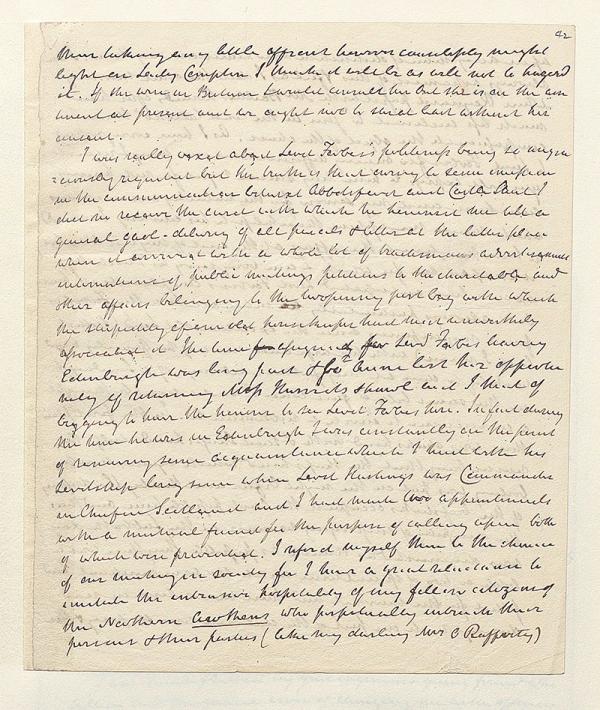 42
their taking any little affront however causelessly might
light on Lady Compton I think it will be as well not to hazard
it. If she was in Britain I would consult her but she is on the con
tinent at present and we ought not to steal last without his
consent.
I was really vexed about Lord Forbes's politeness being so ungra
ciously requited but the truth is that owing to some omission
in the communication betwixt Abbotsford and Castle Street I
did not receive the card with which he honourd me till a
general gaol-delivery of all parcels & letters at the latter place
when it arrived with a whole lot of tradesmens advertisements
intimations of public meetings petitions to the charitable and
other affairs belonging to the twopenny post bag with which
the stupidity of an old housekeeper had most unworthily
associated it. The time assigned for Lord Forbes leaving
Edinburgh was long past & for I had lost the opportu
nity of returning Miss shawl and I that of
begging to have the honour to see Lord Forbes here. In fact during
the time he was in Edinburgh I was constantly on the point
of renewing some acquaintance which I had with his
Lordship long since when Lord Hastings was Commander
in Chief in Scotland and I had made two appointments
with a mutual friend for the purpose of calling upon both
of which were prevented. I referd myself then to the chance
of our meeting in society for I have a great reluctance to
imitate the intrusive hospitality of my fellow citizens of
the Northern Athens who perpetually intrude their
persons & their parties (like my darling Mrs O Rafferty)